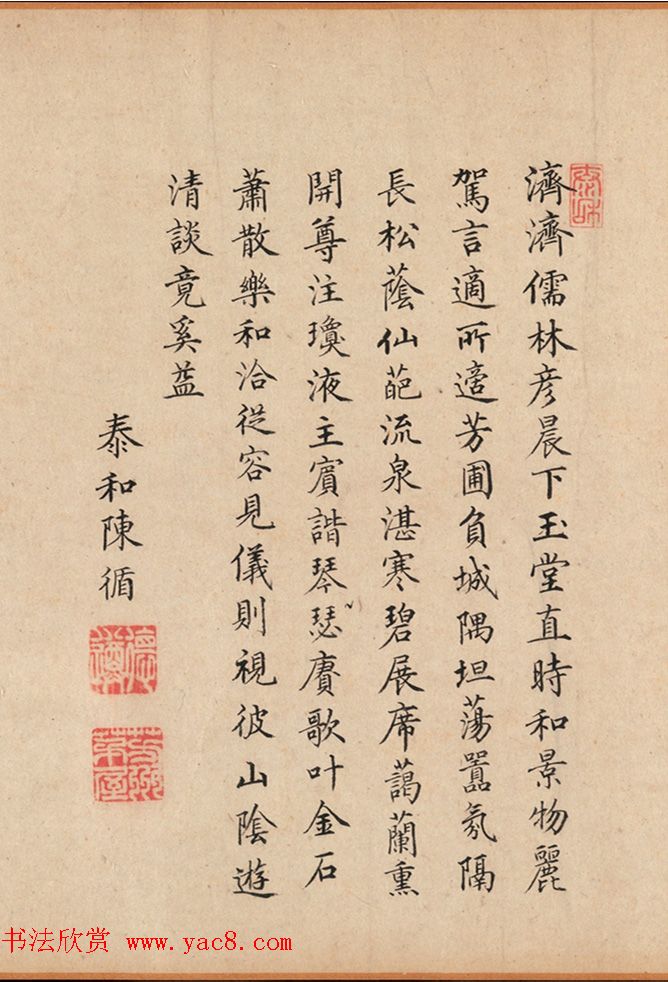 濟濟儒林彦晨下玉堂直時和景物麗
駕言適所適芳圃負城隅坦蕩囂氛隔
長松蔭仙葩流泉湛寒碧展席藹蘭熏
開尊注瓊液主賓諧琴瑟賡歌叶金石
蕭散樂和洽從容見儀則視彼山陰遊
清談竟奚益
泰和陳循
书法欣赏 www.yac8.com